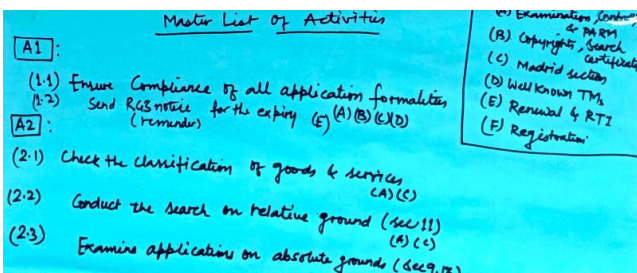 Master List of Activities
A1 :
(1.1) Ensure Compliance of all application formalities
(A)(B)(C)(D)
(1.2) Send RG3 notice for the expiry (E)
(reminder)
A2 :
(2.1) Check the classification of goods & services
(A)(C)
(2.2) Conduct the search on relative ground (sec 11)
(A)(C)
(2.3) Examine applications on absolute grounds (sec 9,
(A) Examination,
& PARM
(B) Copyrights, Search
Certificate
(C) Madrid section
(D) Well Known TM
(E) Renewal & RTI
(F) Registration